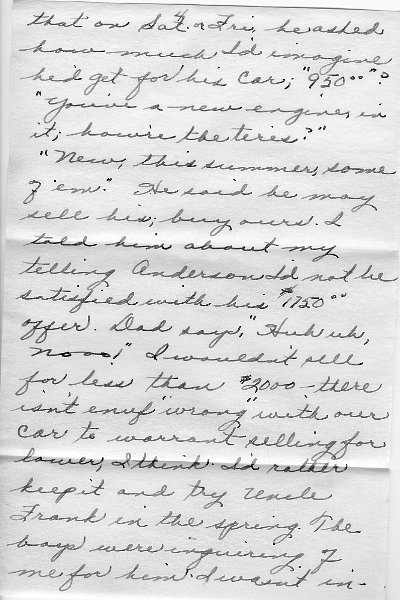 that on Sat. or Fri, he asked
how much I'd imagine
he'd get for his car; "950⁰⁰"?
"You've a new engine, in
it; how're the tires?"
"New, this summer, some
of 'em." He said he may
sell his; buy ours. I
told him about my
telling Anderson I'd not be
satisfied with his $1750⁰⁰
offer. Dad says, "Huh uh,
nooo!" I wouldn't sell
for less than $2000 - there
isn't enuf "wrong" with our
car to warrant selling for
lower, I think. I'd rather
keep it and try Uncle
Frank in the spring. The
boys were inquiring of
me for him. I wasn't in-